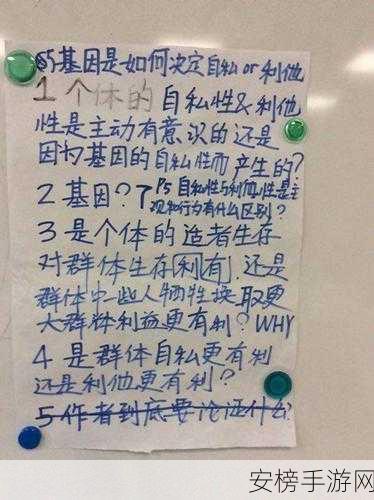 §5基因是如何决定自私or利他
1 个体的自私性&利他
性是主动有意识的还是
因为基因的自私性而产生的?
2 基因? P5 自私性与利他性是主
观和行为有什么区别?
3 是个体的适者生存
对群体生存有利 还是
群体中一些人牺牲换取更
大群体利益更有利? WHY
4 是群体自私更有利
还是利他更有利?
5 作者到底要论证什么?
安榜手游网